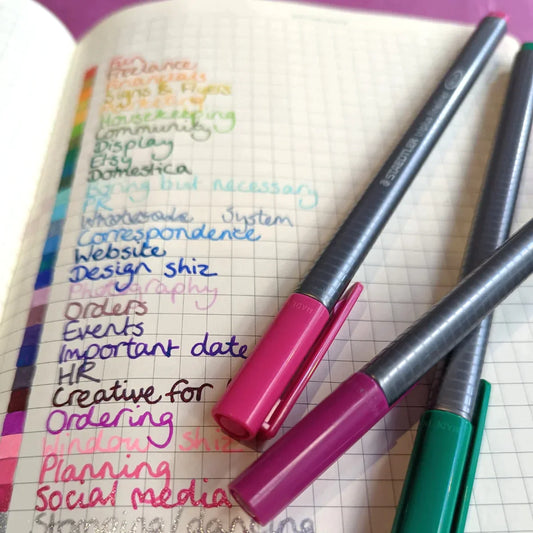 Fun
Freelance
Financials
Signs & Flyers
Marketing
Housekeeping
Community
Display
Etsy
Domestica
Boring but necessary
PR
Wholesale System
Correspondence
Website
Design shiz
Photography
Orders
Events
Important date
HR
Creative for
Ordering
Window shiz
Planning
Social media
Stamping/dancing
STAEDTLER